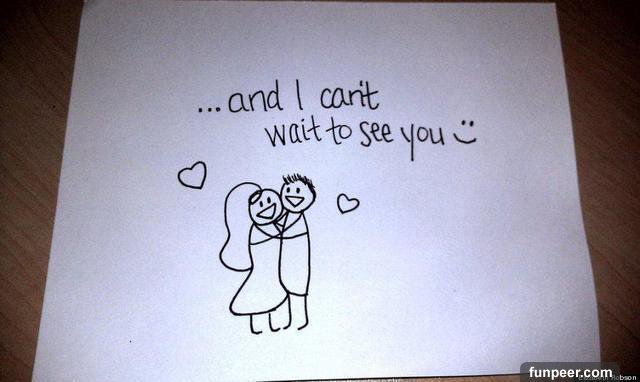 ...and I can't
wait to see you :)
funpeer.com